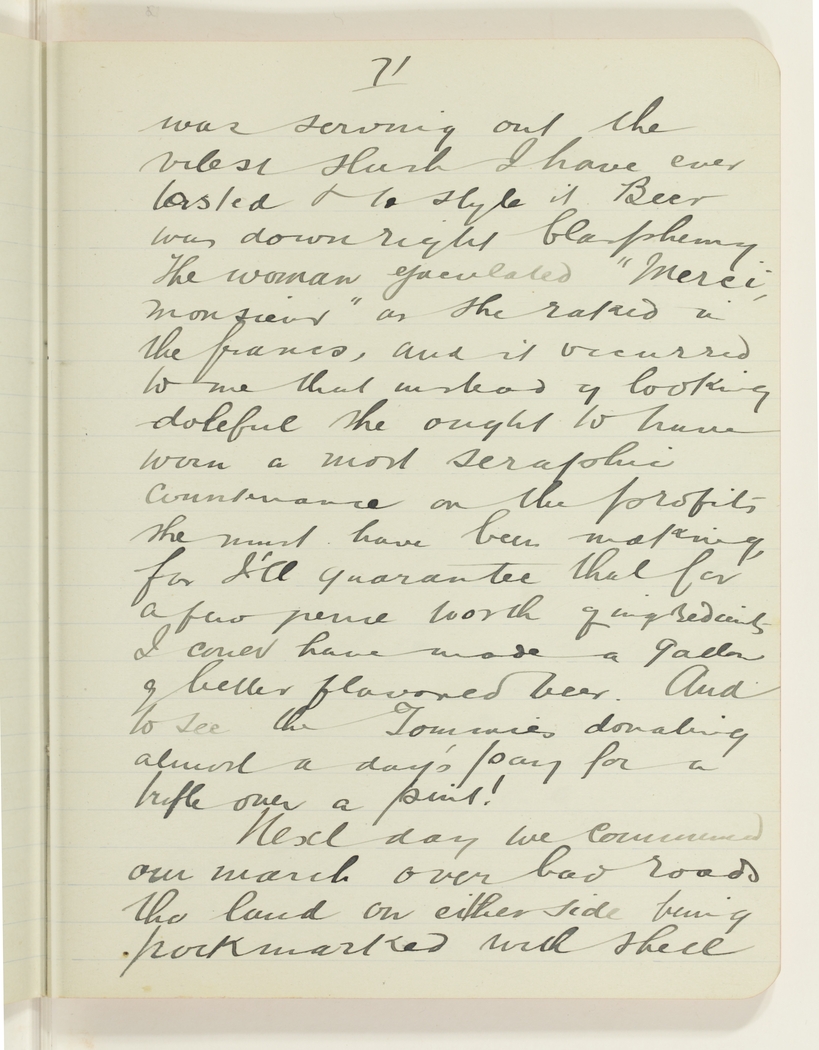 71
was serving out the
vilest slush I have ever
tasted & to style it Beer
was downright blasphemy
The woman ejaculated "Merci,
monsieur" as she raked in
the francs, and it occurred
to me that instead of looking
doleful she ought to have
worn a most seraphic
countenance on the profits
she must have been making,
for I'll guarantee that for
a few pence worth of ingredients
I could have made a gallon
of better flavored beer. And
to see the Tommies donating
almost a day's pay for a
trifle over a pint!
Next day we commenced
our march over bad roads
the land on either side being
pockmarked with shell